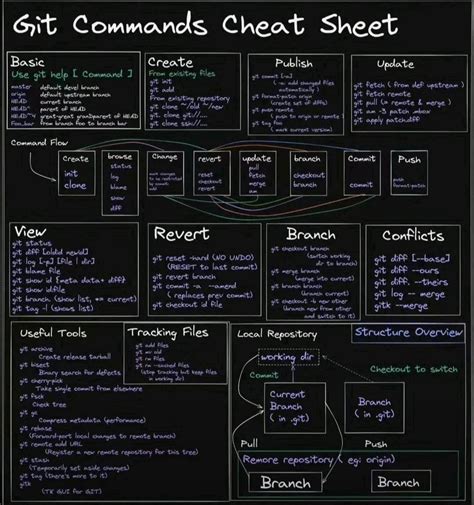 Git Commands Cheat Sheet
Basic
Use git help [ Command ]
master default devel branch
origin default upstream branch
HEAD current branch
HEAD^ parent of HEAD
HEAD~4 great-great grandparent of HEAD
foo..bar from branch foo to branch bar
Create
From existing files
git init
git add
From existing repository
git clone ~/old ~/new
git clone git://...
git clone ssh://...
Publish
git commit [-a]
(-a: add changed files
automatically )
git format-patch origin
(create set of diffs)
git push remote
( push to origin or remote )
git tag foo
( mark current version)
Update
git fetch ( from def upstream )
git fetch remote
git pull (= remote & merge )
git am -3 patch mbox
git apply patch.diff
Command Flow
Create
init
clone
browse
status
log
blame
show
diff
Change
mark changes
to be restricted
by commit:
add
revert
reset
checkout
revert
update
pull
fetch
merge
am
branch
checkout
branch
Commit
commit
Push
push
format-patch
View
git status
git diff [oldid newid]
git log [-p] [file | dir]
git blame file
git show id [meta data+ diff]
git show id:file
git branch (show list, ** current)
git tag -l (shows list)
Revert
git reset -hard (NO UNDO)
(RESET to last commit)
git revert branch
git commit -a --amend
( replaces prev commit)
git checkout id file
Branch
git checkout branch
(switch working
dir to branch)
git merge branch
(merge into current)
git branch branch
(branch current)
git checkout -b new other
(branch new from other
and switch to it)
Conflicts
git diff [--base]
git diff --ours
git diff --theirs
git log -- merge
gitk --merge
Useful Tools
git archive
Create release tarball
git bisect
Binary search for defects
git cherry-pick
Take single commit from elsewhere
git fsck
Check tree
git gc
Compress metadata (performance)
git rebase
(Forward-port local changes to remote branch)
git remote add URL
(Register a new remote repository for this tree)
git stash
(Temporarily set aside changes)
git tag (there's more to it)
gitk
(TK GUI for GIT)
Tracking Files
git add files
git mv old
git rm files
git rm --cached files
(stop tracking but keep files
in working dir)
Local Repository
Structure Overview
working dir
Commit
Checkout to switch
Current
Branch
( in .git)
Branch
( in .git)
Pull
Push
Remore repository ( eg: origin)
Branch
Branch